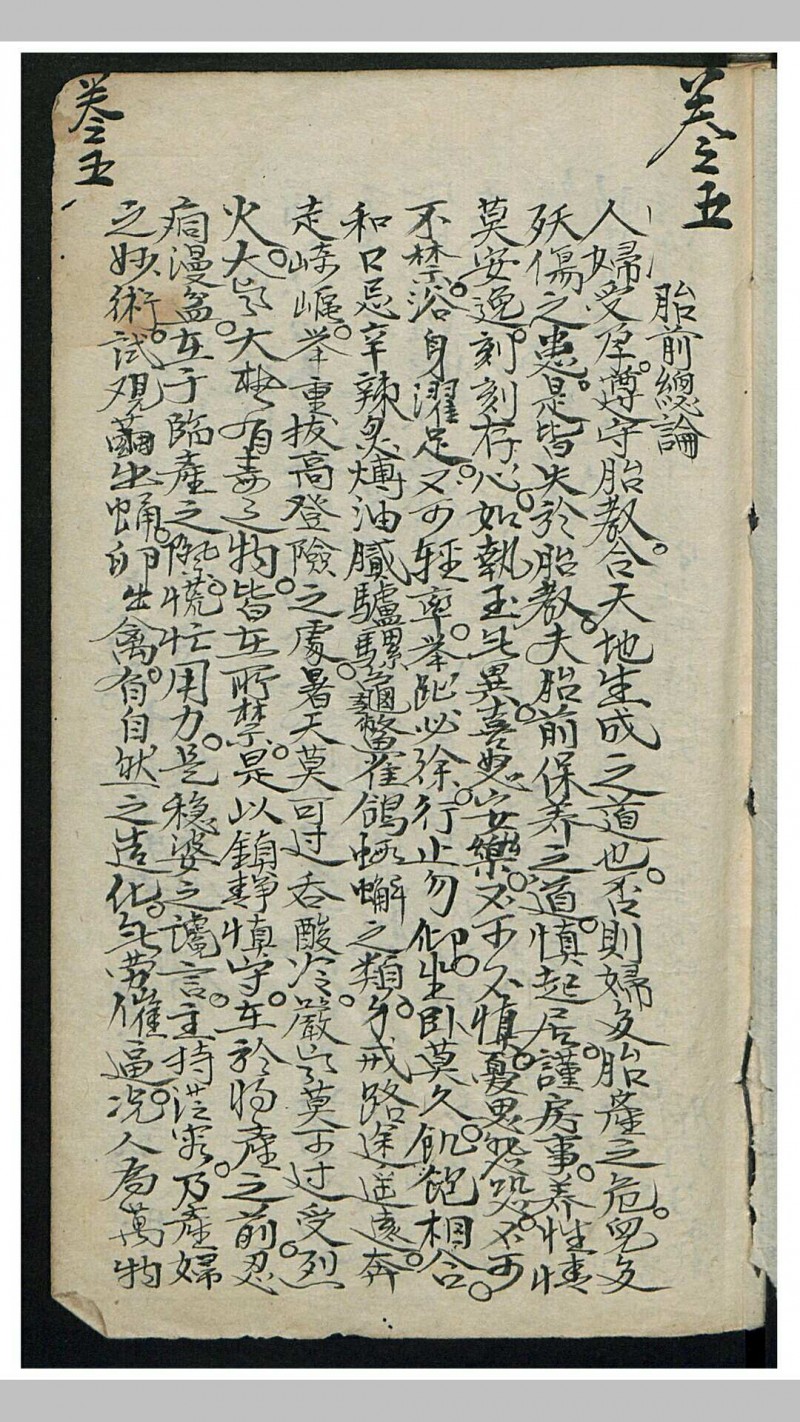 卷之五
胎前總論
人婦受孕。遵守胎教。合天地生成之道也。否則婦多胎產之危。兒多
殀傷之患。是皆失於胎教。夫胎前保养之道。慎起居。謹房事。养性情
莫安逸。刻刻存心。如執玉。喜怒安樂。不可不慎。憂思怨恐。不可
不禁。浴身濯足。不可輕率。举趾必徐。行止勿仰。坐卧莫久。飢飽相合。
和口忌辛辣炙煿油膩驢騾龜鱉雀鴿螃蠏之類。身戒路途遥遠。奔
走崎嶇。举重拔高登險之處。暑天莫可过吞酸冷。嚴莫可过受烈
火。大大有毒之物。皆在所禁。是以鎮静慎守。在於将產之前。忍
痛漫盆。在于臨產之際。慌忙用力。是稳婆之讝言。主持從容。乃產婦
之妙術。試观繭出蛹。卵出禽。有自然之造化。劳催逼。况人為萬物
卷之五